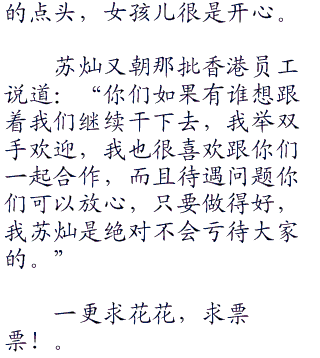 的点头，女孩儿很是开心。
苏灿又朝那批香港员工
说道：“你们如果有谁想跟
着我们继续干下去，我举双
手欢迎，我也很喜欢跟你们
一起合作，而且待遇问题你
们可以放心，只要做得好，
我苏灿是绝对不会亏待大家
的。”
一更求花花，求票
票！。